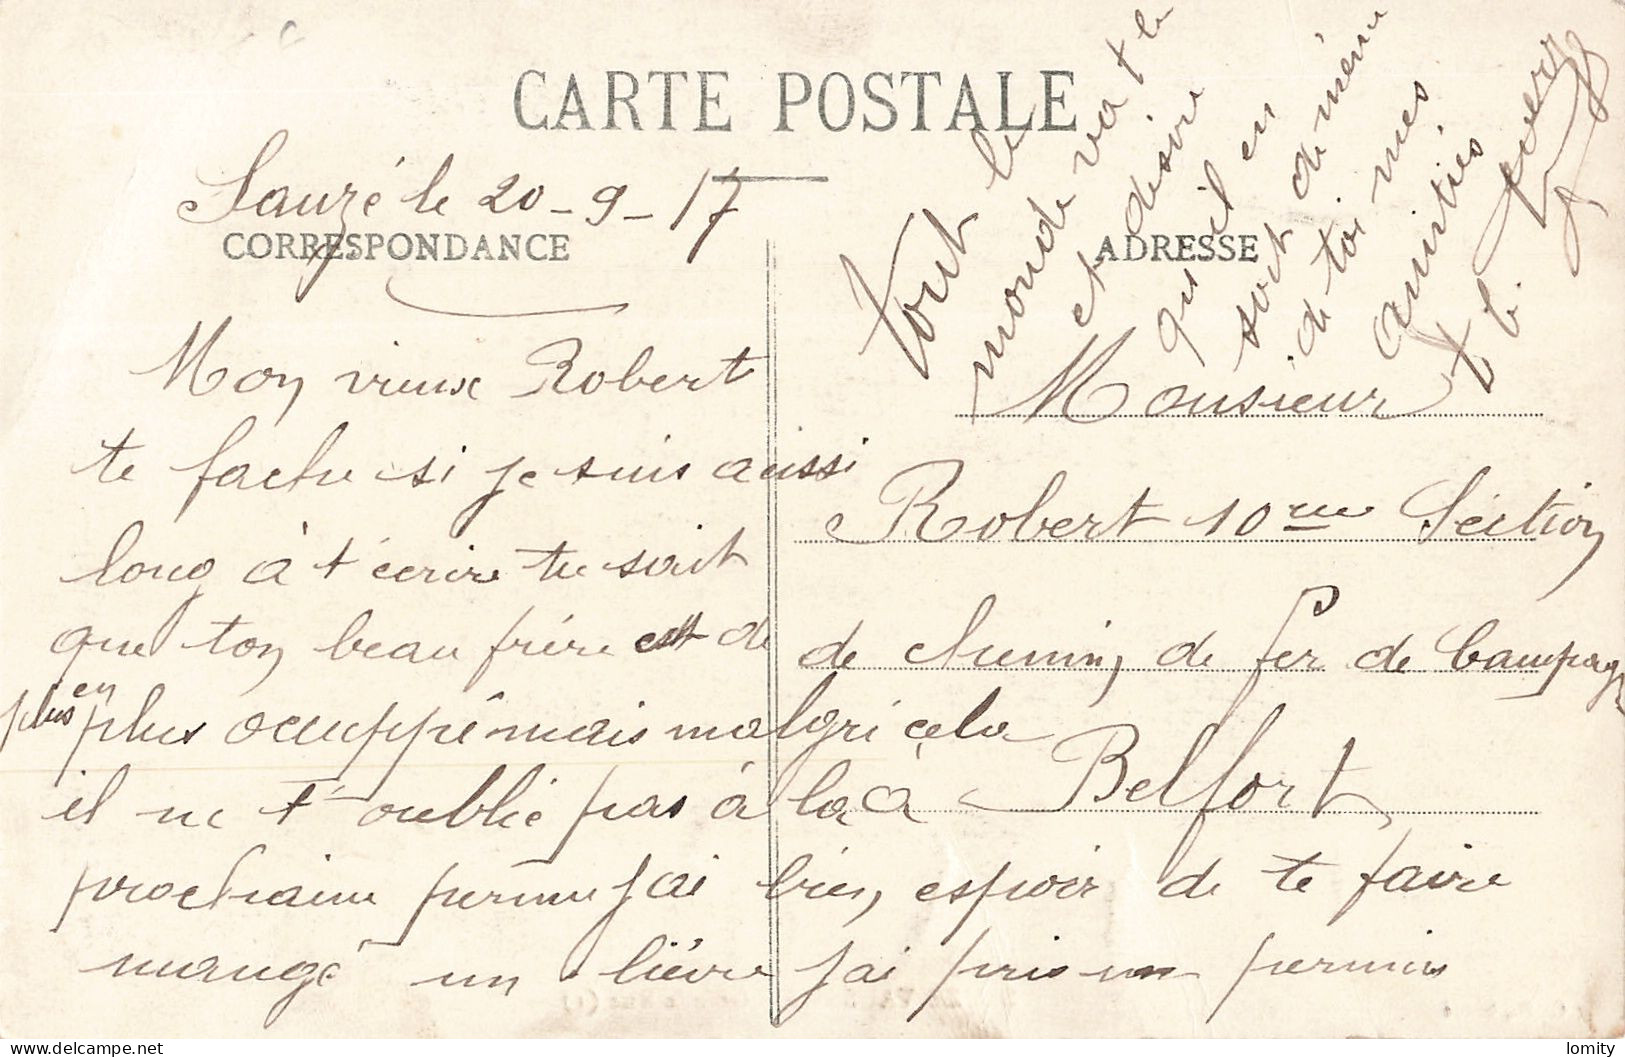 CARTE POSTALE
Sauzé le 20-9-17
CORRESPONDANCE
Mon vieux Robert
te fache si je suis aussi
long à t'écrire tu sait
que ton beau frère est de
plus en plus occuppé mais malgré cela
il ne t'oublie pas à la à
prochaine perme j'ai bien espoir de te faire
mangé un lièvre j'ai pris un permis
tout le
monde va t b
et désire
qu'il en
soit de même
de toi mes
amitiés
ADRESSE
Monsieur
Robert 10eme Séction
de chemin de fer de Campagn
Belfort
lomity